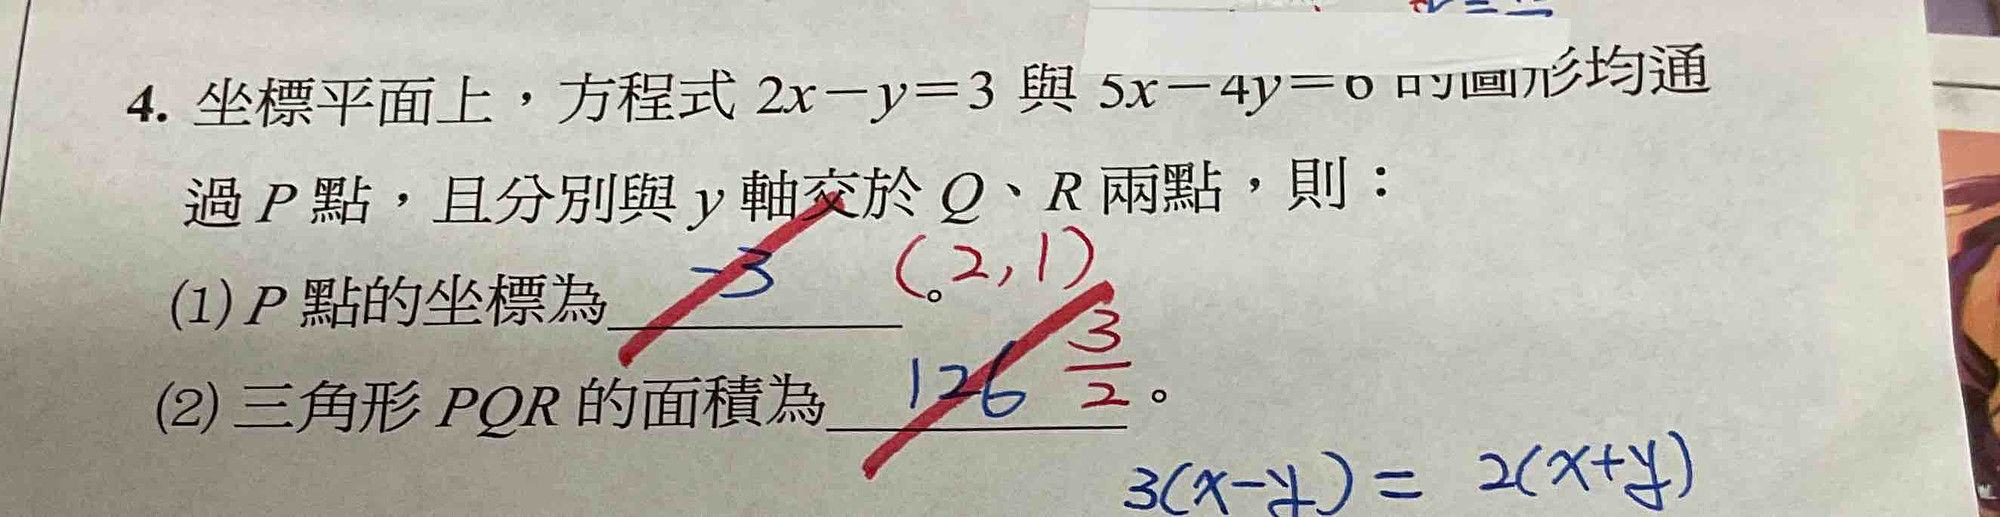 4. 坐標平面上，方程式 2x－y＝3 與 5x－4y＝6 的圖形均通
過 P 點，且分別與 y 軸交於 Q、R 兩點，則：
(1) P 點的坐標為 -3 。 (2,1)
(2) 三角形 PQR 的面積為 126 3/2 。
3(x-y) = 2(x+y)